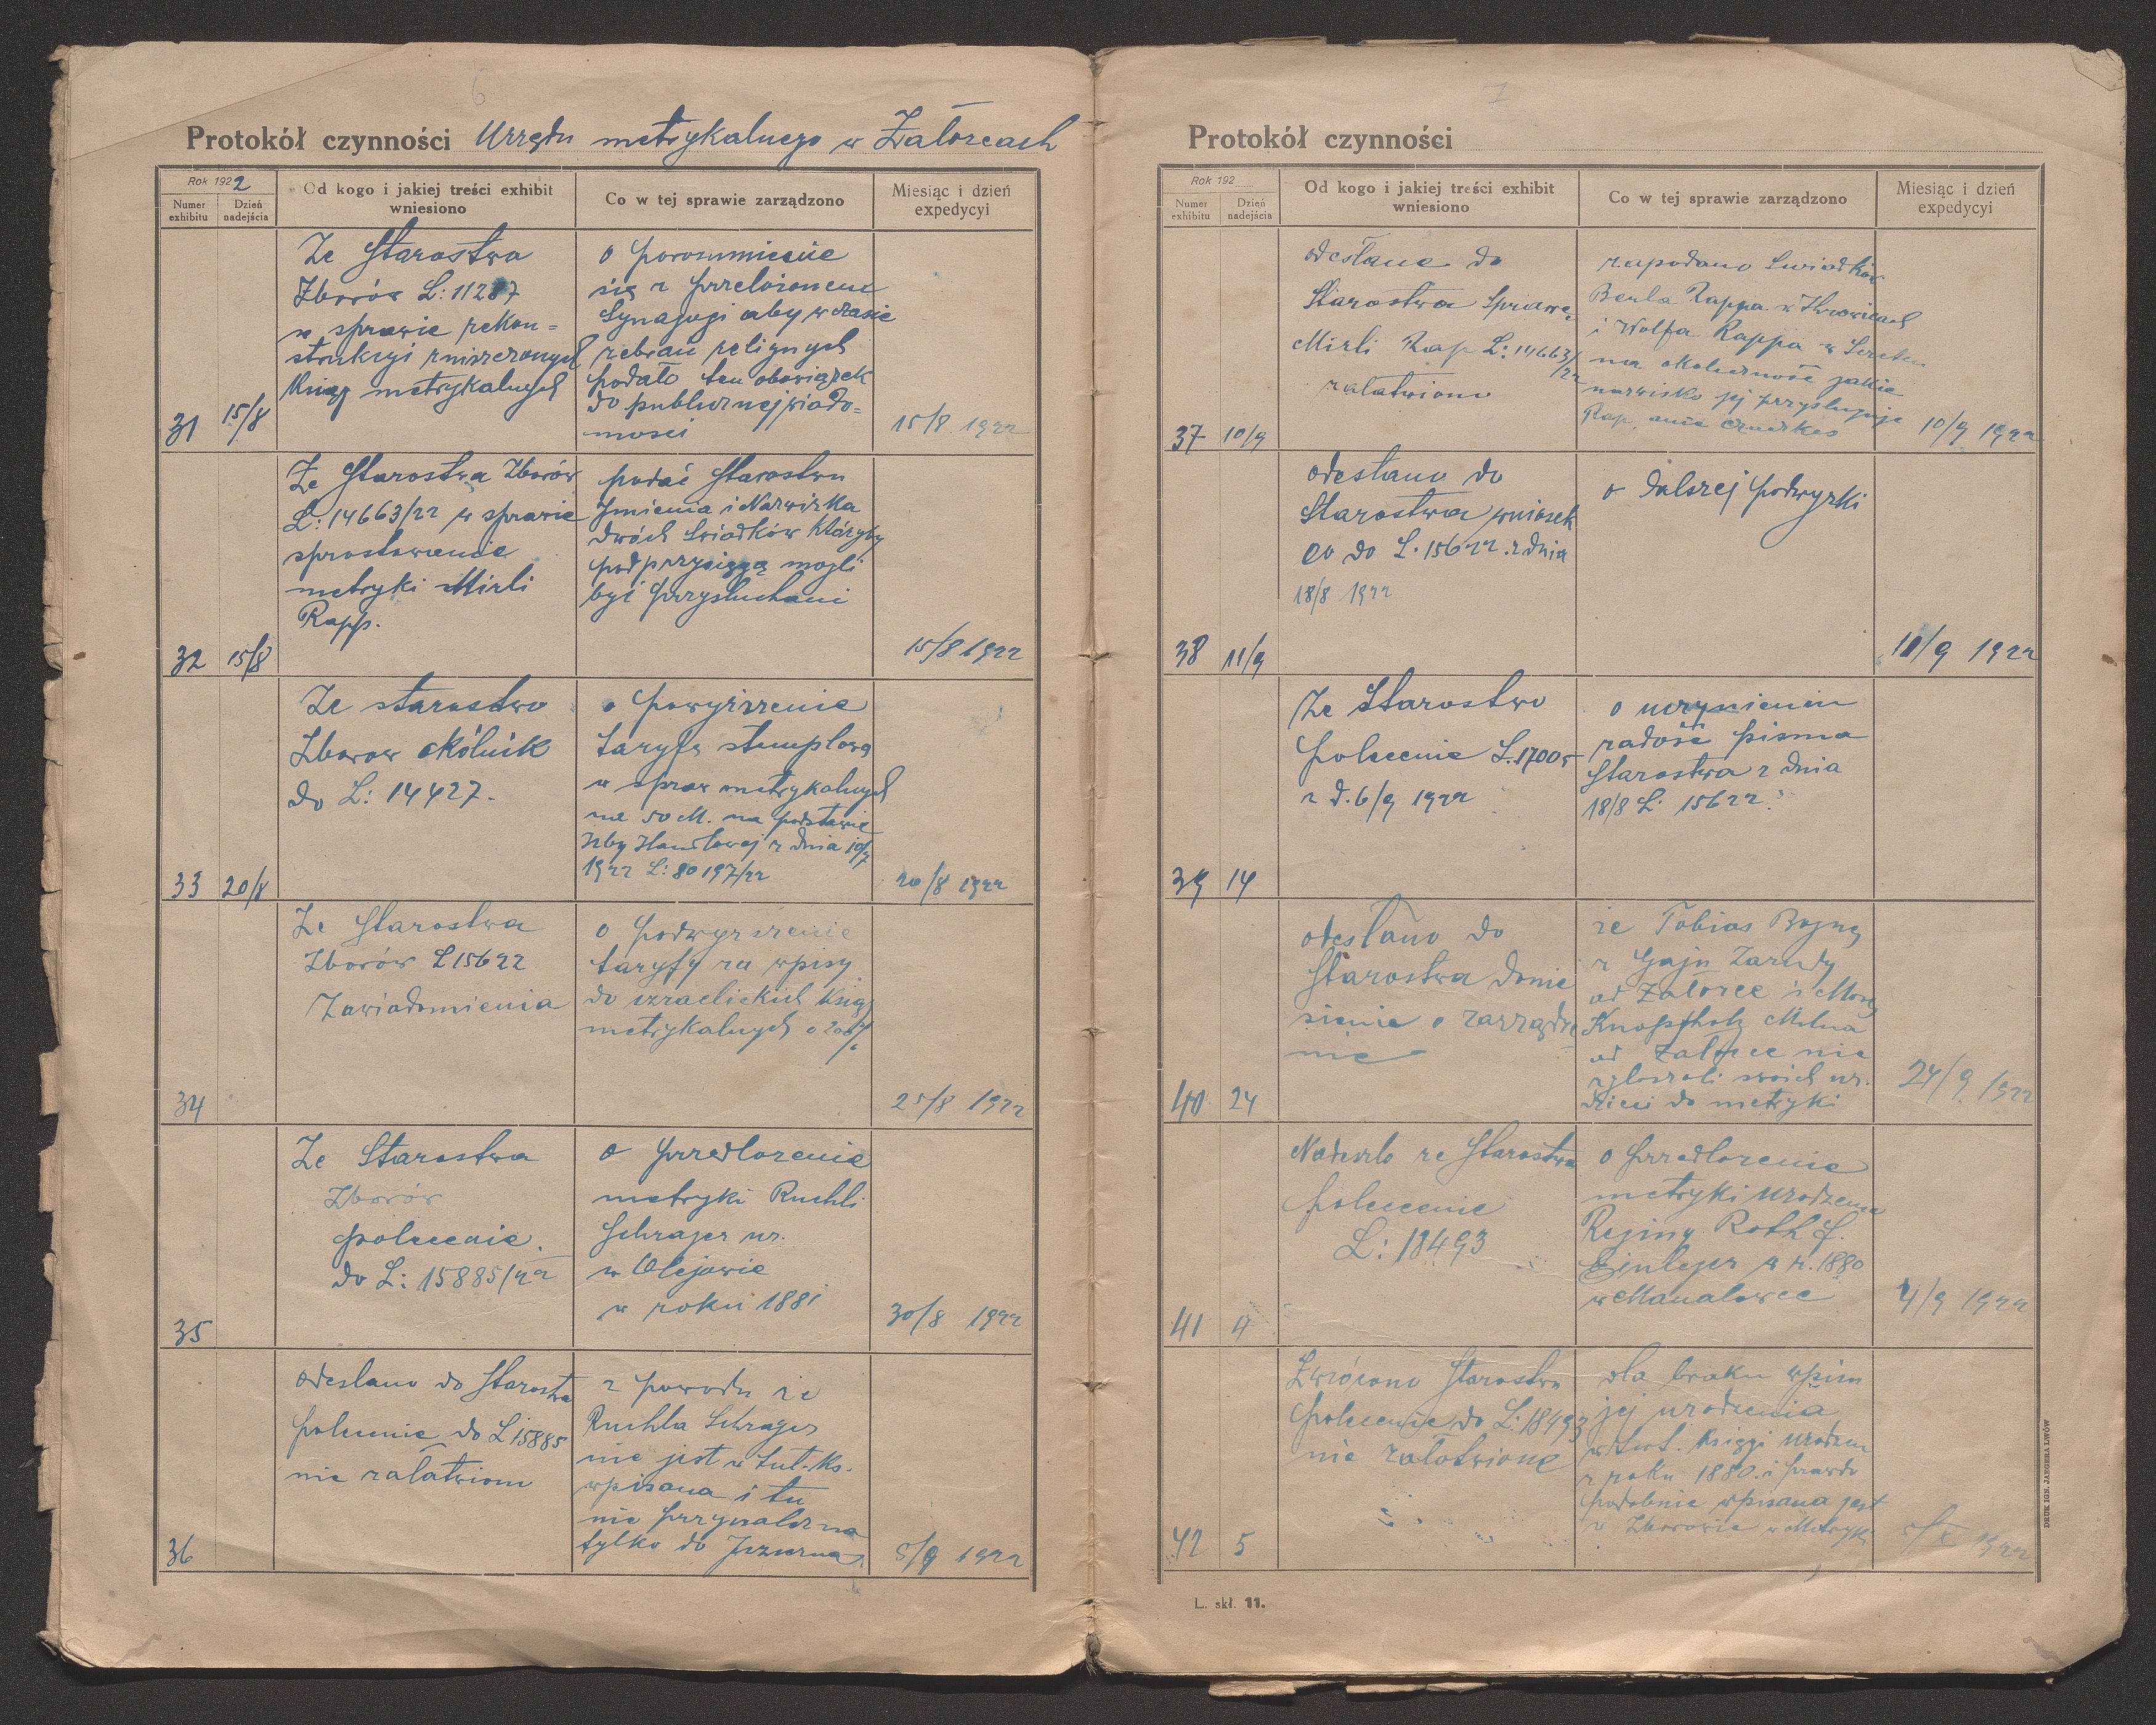 6
Protokół czynności Urzędu metrykalnego w Załoźcach
Rok 1922
Numer exhibitu
Dzień nadejścia
Od kogo i jakiej treści exhibit wniesiono
Co w tej sprawie zarządzono
Miesiąc i dzień expedycyi
31
15/8
Ze Starostwa
Zborów L: 11287
w sprawie rekon=
strukcyi zniszczonych
Ksiąg metrykalnych
o porozumienie
się z przełożonem
Synagogi aby w czasie
zebrań relignych
podało ten obowiązek
do publicznej wiado=
mosci
15/8 1922
32
15/8
Ze Starostwa Zborów
L: 14663/22 w sprawie
sprostowanie
metryki Mirli
Rapp.
podać Starostwu
Imiena i Nazwiska
dwóch świadków którzyby
pod przysięgą mogli
być przysłuchani
15/8 1922
33
20/8
Ze starostwo
Zborow okólnik
do L: 14427.
o powyższenie
taryfy stemplową
w spraw metrykalnych
na 50 M. na podstawie
Izby Handlowej z dnia 10/7
1922 L: 80197/22
20/8 1922
34
Ze Starostwa
Zborów L 15622
Zawiadomienia
o podwyższenie
taryfy za wpisy
do izraelickich Ksiąg
metrykalnych o
25/8 1922
35
Ze Starostwa
Zborów
polecenie
do L: 15885/22
o przedłożenie
metryki Ruchli
Schrager ur.
w Olejowie
w roku 1881
30/8 1922
36
odesłano do Starostwa
polecenie do L 15885
nie załatwiono
z powodu że
Ruchla Schrager
nie jest w tut. ks.
wpisana i tu
nie przynależna
tylko do Jezierna
5/9 1922
7
Protokół czynności
Rok 192
Numer exhibitu
Dzień nadejścia
Od kogo i jakiej treści exhibit wniesiono
Co w tej sprawie zarządzono
Miesiąc i dzień expedycyi
37
10/9
odesłane do
Starostwa sprawę
Mirli Rap L: 14663/22
załatwiono
zapodano świadków
Berla Rappa w
i Wolfa Rappa w
na okoliczność jakie
nazwisko jej przysługuje
Rap, anie
10/9 1922
38
11/9
odesłano do
Starostwa wniosek
co do L. 15622 z dnia
18/8 1922
o dalszej podwyżki
11/9 1922
39
14
Ze Starostwo
polecenie L. 17005
z d. 6/9 1922
o uczynieniu
zadość pisma
Starostwa z dnia
18/8 L: 15622.
40
24
odesłano do
Starostwa donie
sienie o zarządze
nie
że Tobias
z Gaju Zarudy
ad Załoźce i
Milna
ad Załoźce nie
zgłoszali swoich ur.
dzieci do metryki
24/9 1922
41
4
Nadeszło ze Starostwa
polecenie
L: 18493
o przedłożenie
metryki urodzenia
Reginy Roth f.
w r. 1880
w
4/9 1922
42
5
Zwrócono Starostwu
polecenie do L: 18493
nie załatwione
dla braku wpisu
jej urodzenia
w tut. księgi urodzen
z roku 1880. i prawdo
podobnie wpisana jest
w Zborowie w Metryk
5/X 1922
L. skł. 11.
DRUK IGN. JAEGERA LWÓW